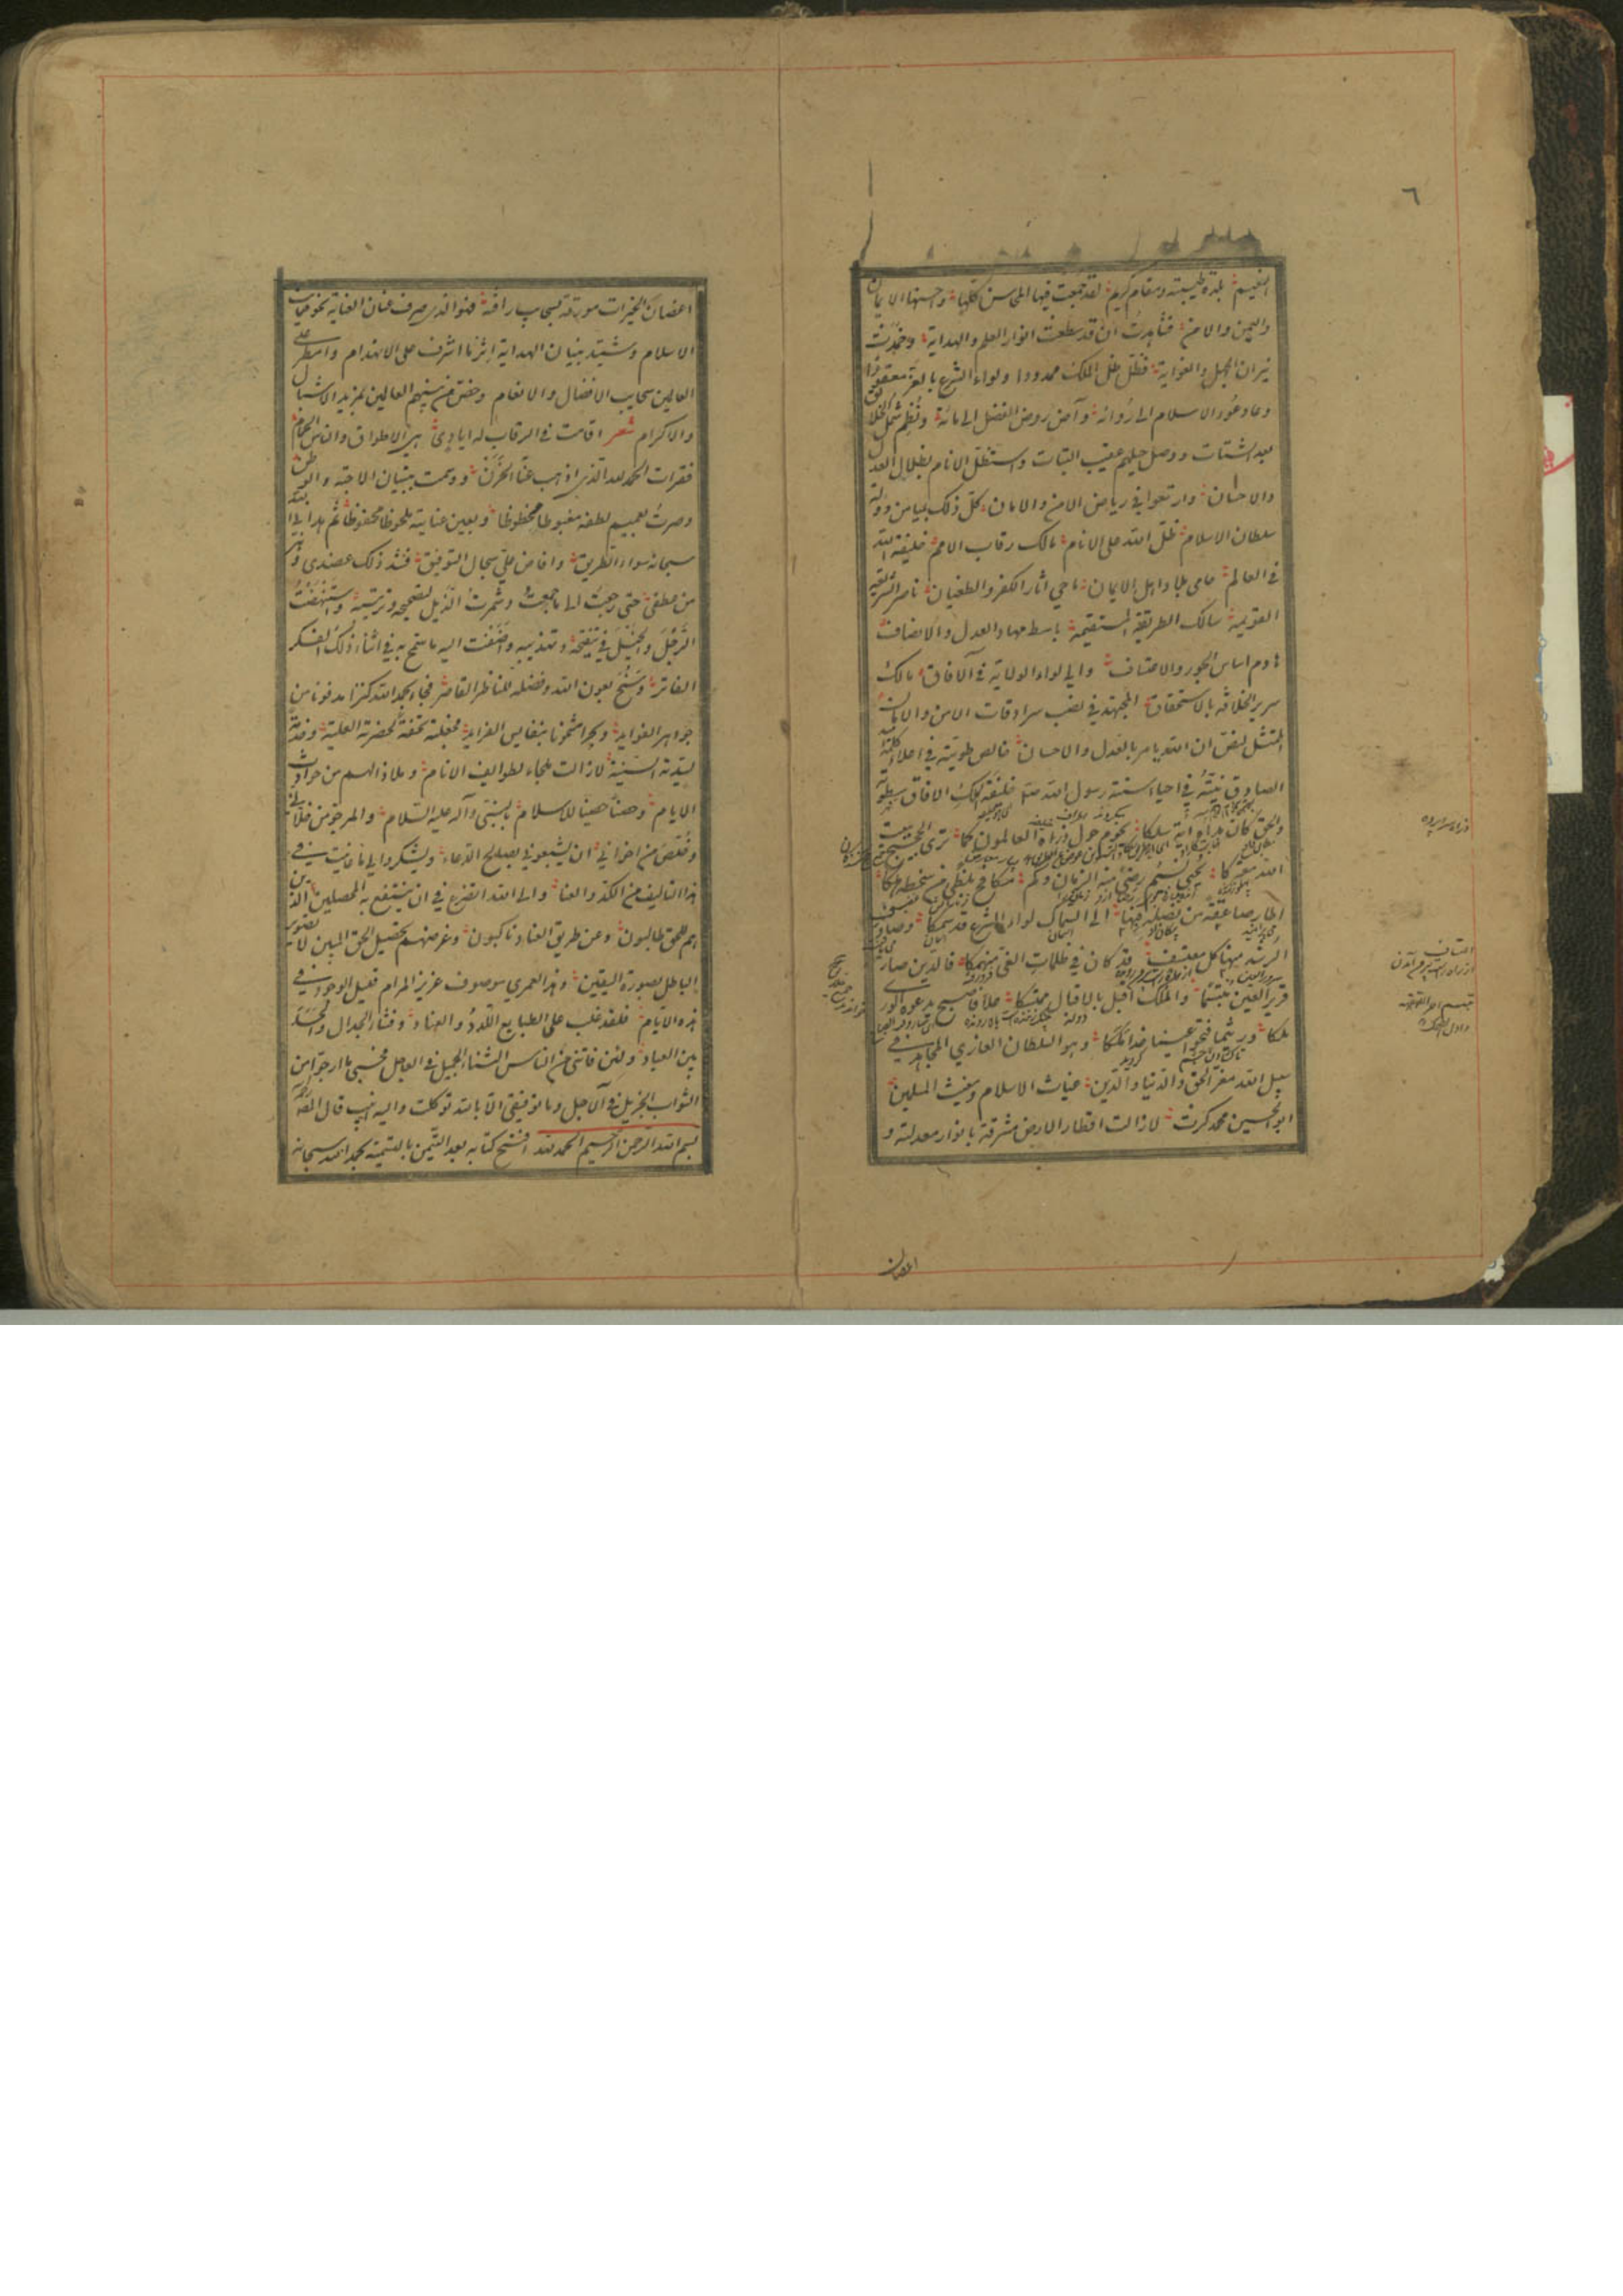 ٦
النعيم بلدة طيبة ومقام كريم لقد جمعت فيها المحاسن كلها واحسنها الايمان
واليمن والامن فشاهدت ان قد سطعت انوار العلم والهداية وخمدت
نيران الجهل والغواية فظل ظل الملك ممدودا ولواء الشرع بالعز معقودا
وعاد عود الاسلام الى روائه وآض روض الفضل الى مائه ونظم شمل الخلائق
بعد الشتات ووصل حبلهم عقيب البتات واستظل الانام بظلال العدل
والاحسان وارتعوا في رياض الامن والامان كل ذلك بميامن دولة
سلطان الاسلام ظل الله على الانام مالك رقاب الامم خليفة الله
في العالم حامي بلاد اهل الايمان ماحي آثار الكفر والطغيان ناصر الشريعة
القويمة سالك الطريقة المستقيمة باسط مهاد العدل والانصاف
هادم اساس الجور والاعتساف والي لواء الولاية في الآفاق مالك
سرير الخلافة بالاستحقاق المجتهد في نصب سرادقات الامن والامان
الممتثل لنص ان الله يامر بالعدل والاحسان خالص طويته في اعلاء كلمة الله
الصادق نيته في احياء سنة رسول الله
ملك الآفاق سطوته
والحق كان مداه اية سلكا يحوم حول ذراه العالمون كما ترى الحجيج ببيت
الله معتركا يحيي نسيم رضى منه الزمان وكم مكافح بلظى من سخطه هلكا
اطار صاعقة من نصله فبها الى السماك لواء الشرع قد سمكا وصادف
الرشد مهنا كل معتسف قد كان في ظلمات الغي منهمكا فالدين صار
قرير العين مبتسما والملك اقبل بالاقبال محتبكا علا فاصبح يدعوه الورى
ملكا وريثما فتحوا عينا غدا ملكا وهو السلطان الغازي المجاهد في
سبيل الله معز الحق والدنيا والدين غياث الاسلام ومغيث المسلمين
ابو الحسين محمد كرت لا زالت اقطار الارض مشرقة بانوار معدلته و
اغصان
اغصان الخيرات مورقة بسحاب رأفته فهو الذي صرف عنان العناية نحو حماية
الاسلام وشيد بنيان الهداية اثر ما اشرف على الانهدام وامطر على
العالمين سحايب الافضال والانعام وخص من بينهم العالمين بمزيد الاشبال
والاكرام شعر اقامت في الرقاب له ايادي هي الاطواق والناس الحمام
فقرات الحمد لله الذي اذهب عنا الحزن ووسمت بنسيان الاحبة والوطن
وصرت بعميم لطفه مغبوطا محظوظا وبعين عنايته ملحوظا محفوظا ثم هداني الله
سبحانه سواء الطريق وافاض علي سجال التوفيق فشد ذلك عضدي وهز
من عطفي حتى رجعت الى ما جمعت وشمرت الذيل لتصحيحه وترتيبه واستنهضت
الرجل والخيل في تنقيحه وتهذيبه واضفت اليه ما سنح به في اثناء ذلك الفكر
الفاتر وسنح بعون الله وفضله للناظر القاصر فجاء بحمد الله كنزا مدفونا من
جواهر الفوايد وبحرا مشحونا بنفايس الفرايد فجعلته تحفة لحضرته العلية وخدمة
لسدته السنية لا زالت ملجاء لطوايف الانام وملاذا لهم من حوادث
الايام وحصنا حصينا للاسلام بالنبي وآله عليه السلام والمرجو من خلاني
وخلص من اخواني ان يشيعوني بصالح الدعاء ويشكروا لي ما عانيت في
هذا التاليف من الكد والعناء والى الله اتضرع في ان ينتفع به المحصلين الذين
هم للحق طالبون وعن طريق العناد ناكبون وغرضهم تحصيل الحق المبين لا تصوير
الباطل بصورة اليقين وهذا لعمري موصوف عزيز المرام قليل الوجود في
هذه الايام فلقد غلب على الطبايع اللدد والعناد وفشا الجدال والحسد
بين العباد ولئن فاتني من الناس الثناء الجميل في العاجل فحسبي ما ارجو من
الثواب الجزيل في الآجل وما توفيقي الا بالله توكلت واليه انيب قال المص رحمه
بسم الله الرحمن الرحيم الحمد لله افتتح كتابه بعد التيمن بالتسمية بحمد الله سبحانه